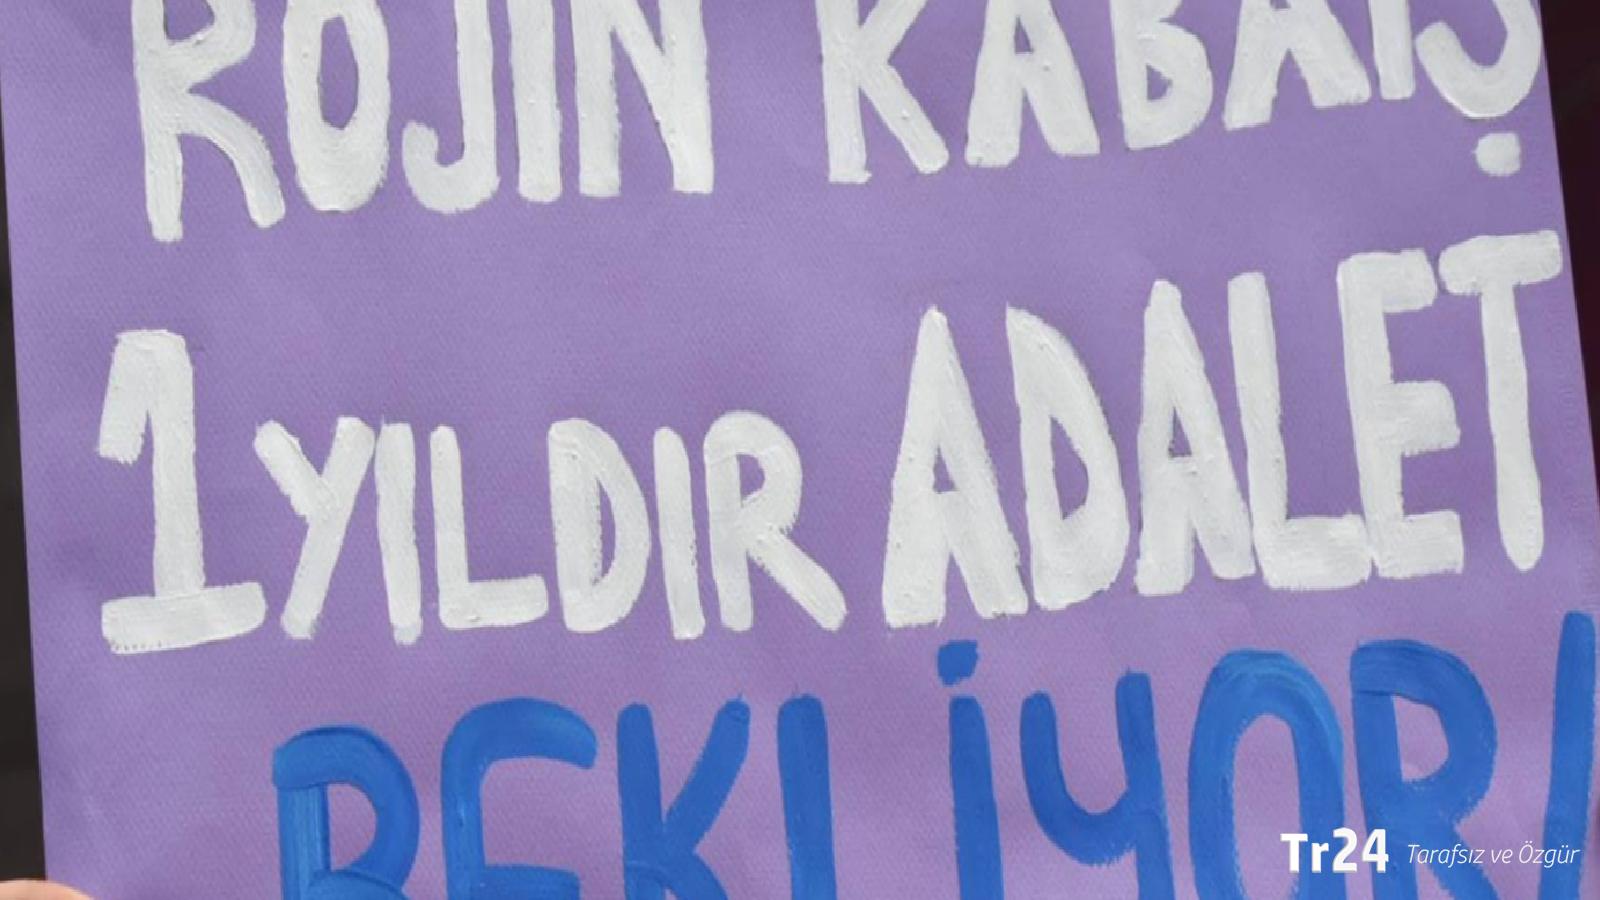 ROJIN KABAIŞ
1 YILDIR ADALET
BEKLİYOR!
Tr24 Tarafsız ve Özgür